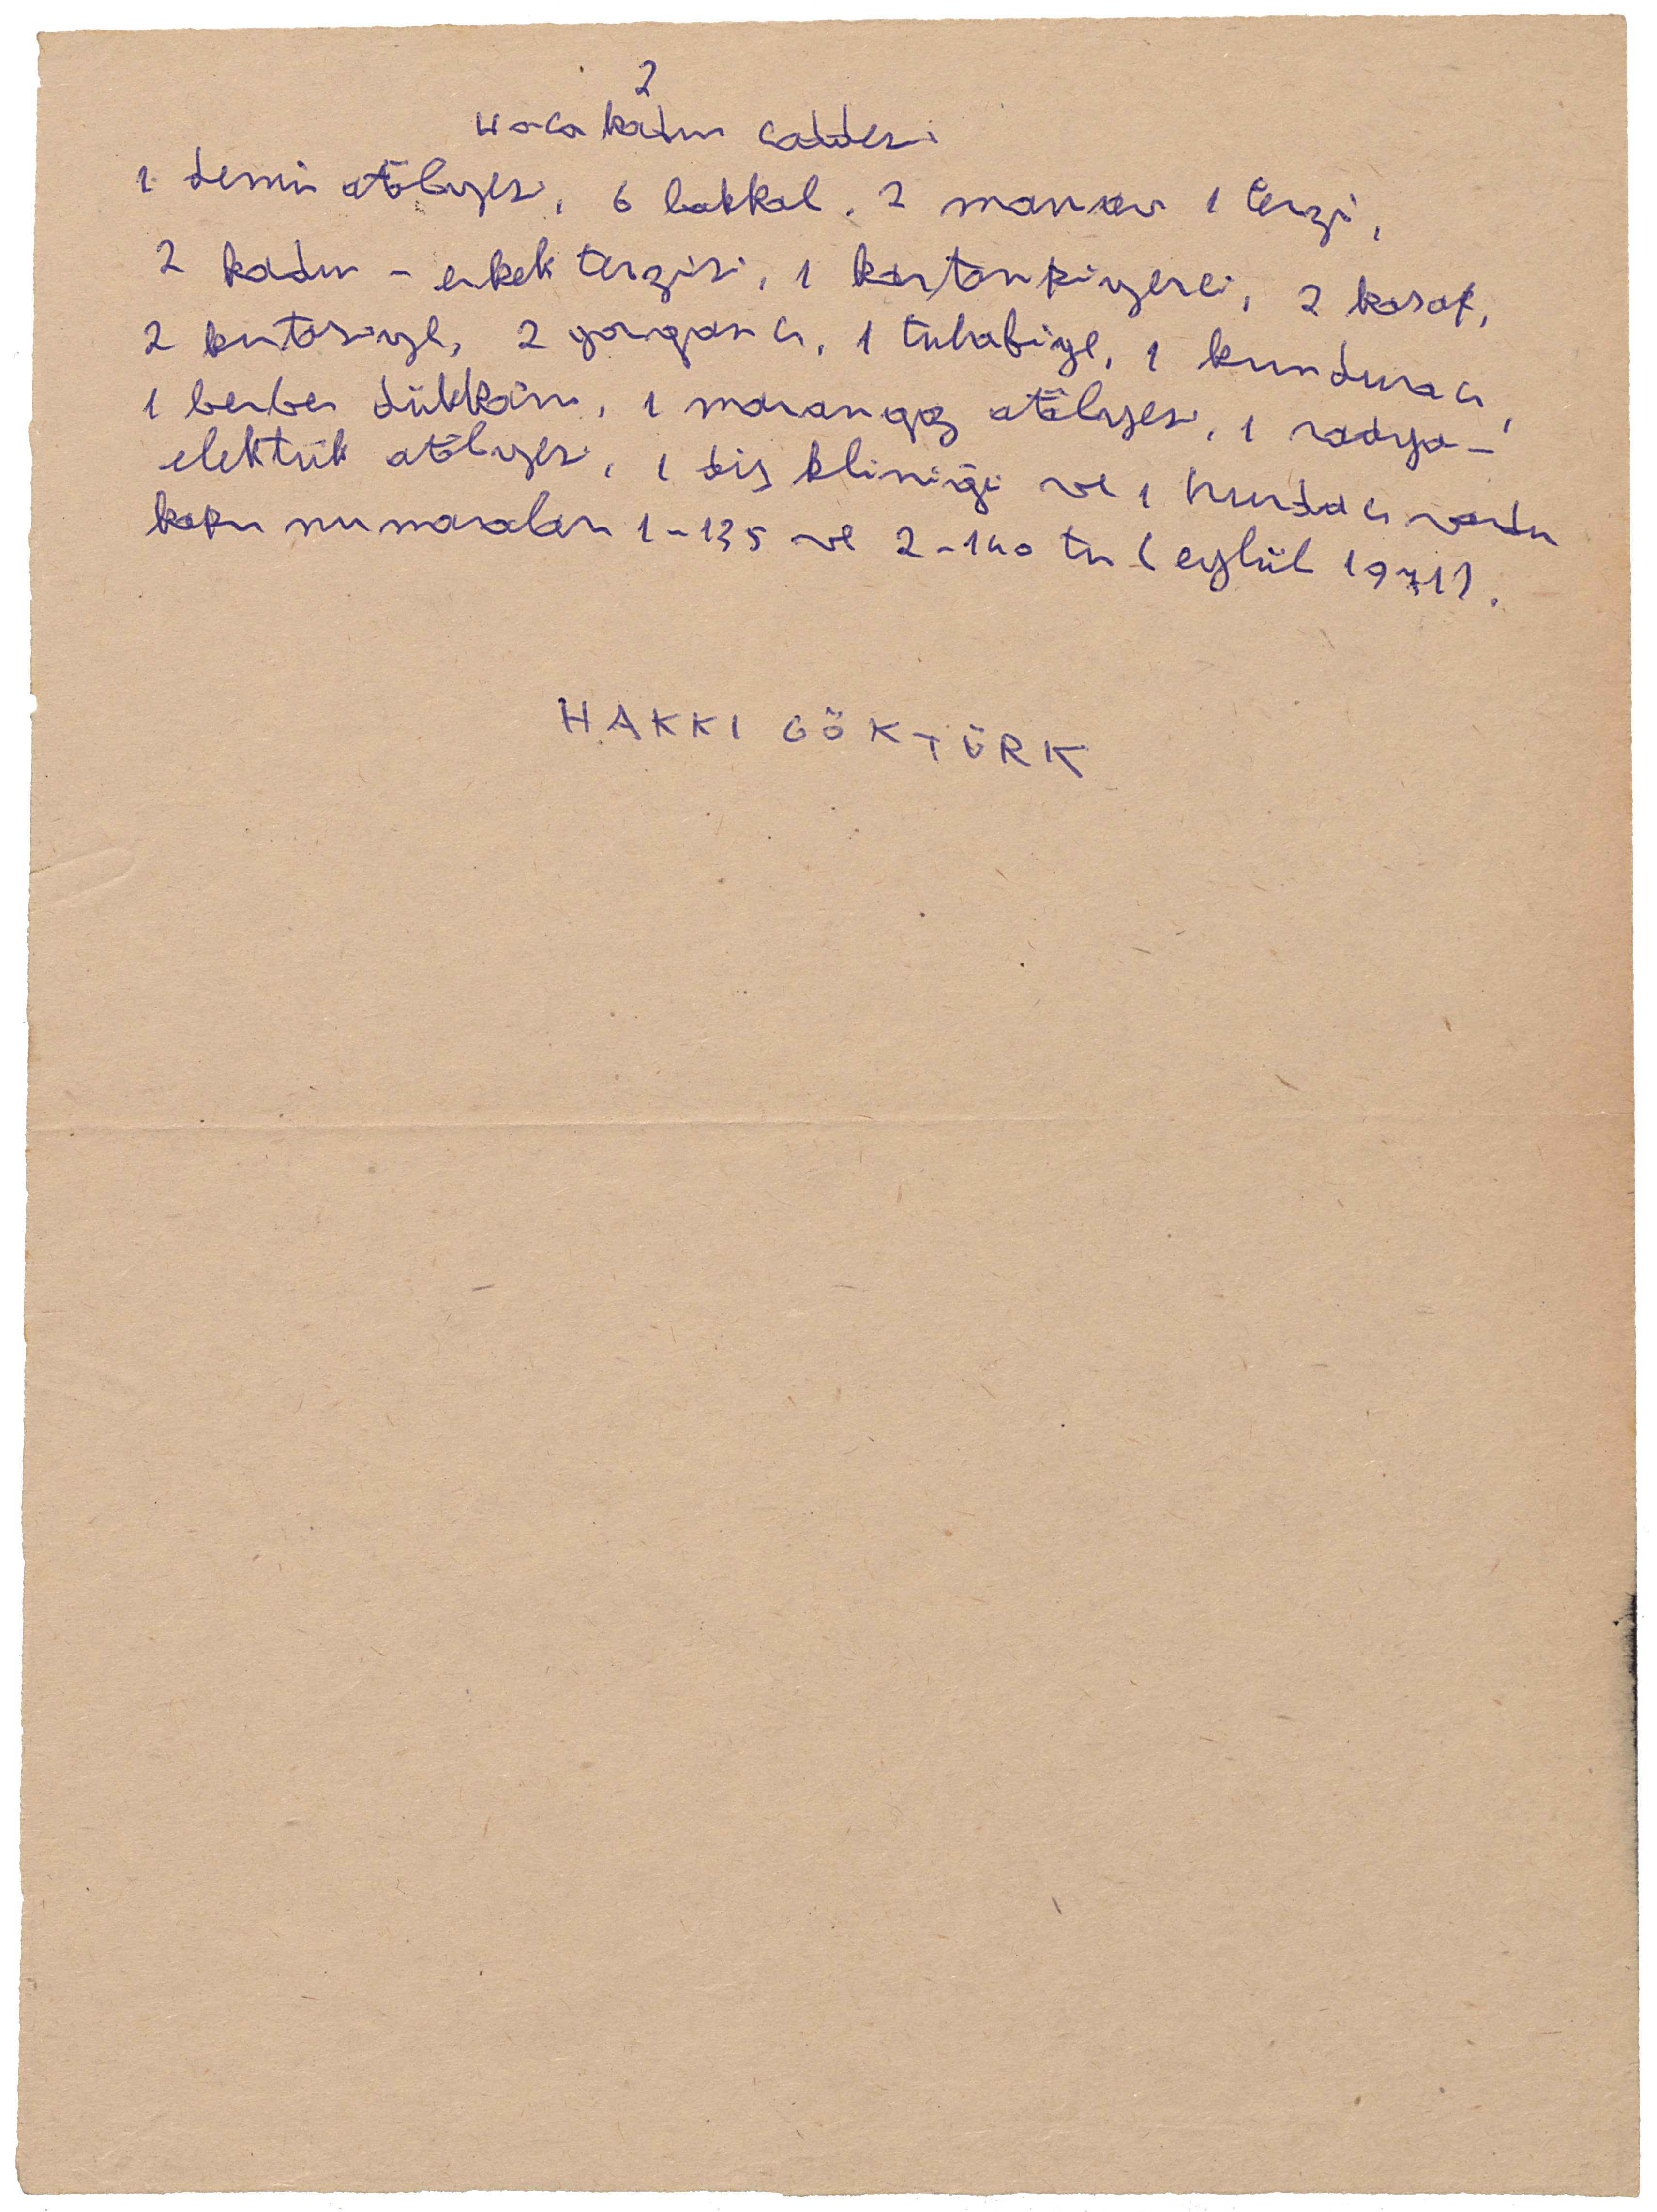 2
Hacıkadın caddesi
1 demir atölyesi, 6 bakkal, 2 manav 1 terzi,
2 kadın - erkek terzisi, 1 kartonpiyerci, 2 kasap,
2 kırtasiye, 2 yorgancı, 1 tuhafiye, 1 kunduracı,
1 berber dükkânı, 1 marangoz atölyesi, 1 radyo-
elektrik atölyesi, 1 diş kliniği ve 1 hurdacı vardır
kapu numaraları 1-135 ve 2-140 tır (eylül 1971).
HAKKI GÖKTÜRK